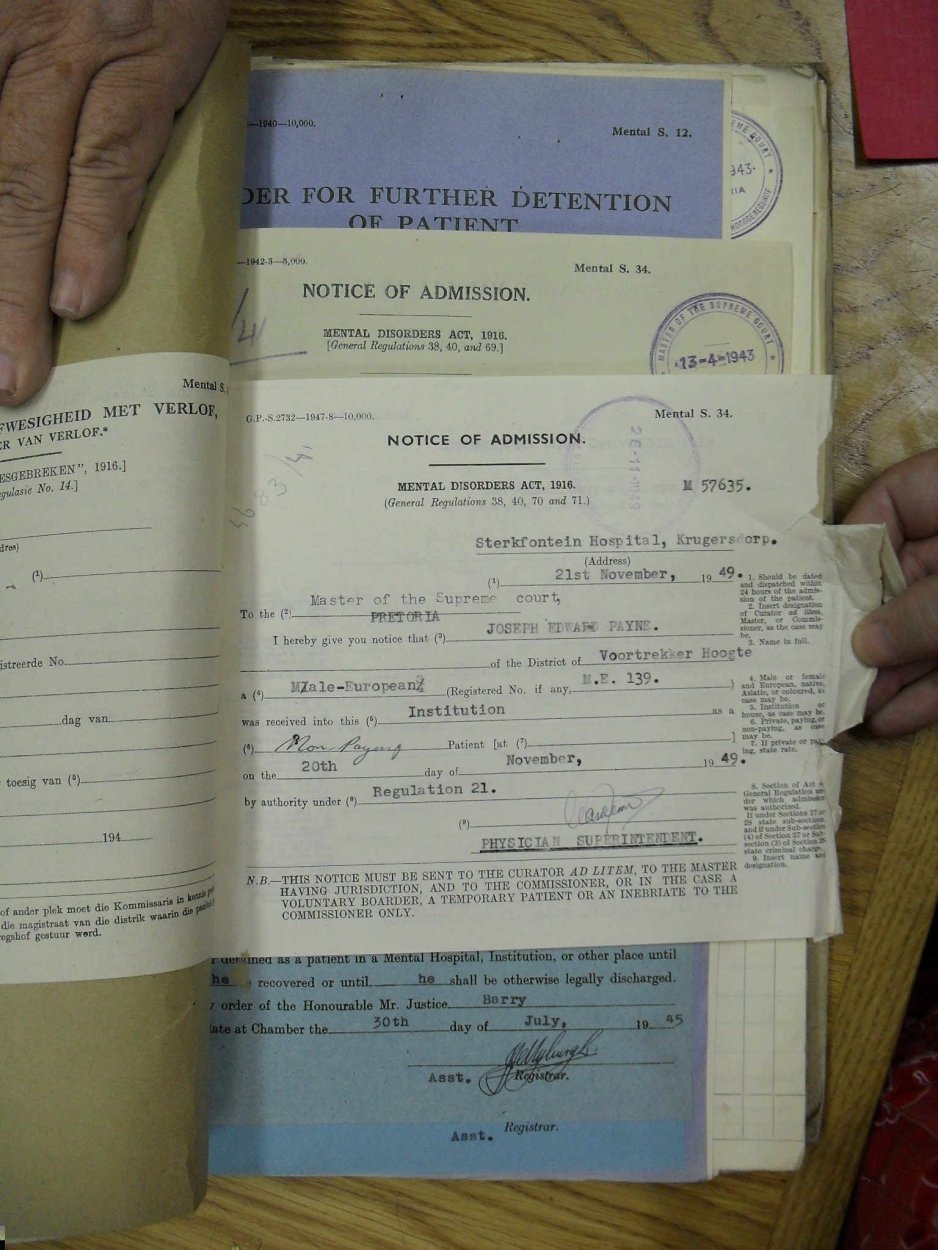 —1940—10,000.
Mental S. 12.
DER FOR FURTHER DETENTION
OF PATIENT
EME COURT
943·
IA
HOOGGEREGSHOF
—1942-3—5,000.
Mental S. 34.
NOTICE OF ADMISSION.
MENTAL DISORDERS ACT, 1916.
[General Regulations 38, 40, and 69.]
/41
MASTER OF THE SUPREME COURT
13-4-1943
Mental S.
FWESIGHEID MET VERLOF,
ER VAN VERLOF.*
ESGEBREKEN", 1916.]
gulasie No. 14.]
dres)
(1)
istreerde No.
dag van
toesig van (5)
194
of ander plek moet die Kommissaris in kennis
die magistraat van die distrik waarin die
egshof gestuur werd.
G.P.-S.2732—1947-8—10,000.
Mental S. 34.
4683/41
NOTICE OF ADMISSION.
26-11-1949
MENTAL DISORDERS ACT, 1916.
M 57635.
(General Regulations 38, 40, 70 and 71.)
Sterkfontein Hospital, Krugersdorp.
(Address)
(1) 21st November, 1949.
Master of the Supreme court,
To the (2) PRETORIA
I hereby give you notice that (3) JOSEPH EDWARD PAYNE.
of the District of Voortrekker Hoogte
a (4) Male-European (Registered No. if any, M.E. 139. )
was received into this (5) Institution as a
(6) Non Paying Patient [at (7) ]
on the 20th day of November, 1949.
by authority under (8) Regulation 21.
(9)
PHYSICIAN SUPERINTENDENT.
1. Should be dated
and dispatched within
24 hours of the admis-
sion of the patient.
2. Insert designation
of Curator ad litem,
Master, or Commis-
sioner, as the case may
be.
3. Name in full.
4. Male or female
and European, native,
Asiatic, or coloured, as
case may be.
5. Institution or
house, as case may be.
6. Private, paying, or
non-paying, as case
may be.
7. If private or pay-
ing, state rate.
8. Section of Act or
General Regulation un-
der which admission
was authorized.
If under Sections 27 or
28 state sub-sections,
and if under Sub-section
(4) of Section 27 or Sub-
section (3) of Section 28
state criminal charge.
9. Insert name and
designation.
N.B.—THIS NOTICE MUST BE SENT TO THE CURATOR AD LITEM, TO THE MASTER
HAVING JURISDICTION, AND TO THE COMMISSIONER, OR IN THE CASE A
VOLUNTARY BOARDER, A TEMPORARY PATIENT OR AN INEBRIATE TO THE
COMMISSIONER ONLY.
detained as a patient in a Mental Hospital, Institution, or other place until
he recovered or until he shall be otherwise legally discharged.
order of the Honourable Mr. Justice Barry
ate at Chamber the 30th day of July, 1945
Asst. Registrar.
Asst. Registrar.